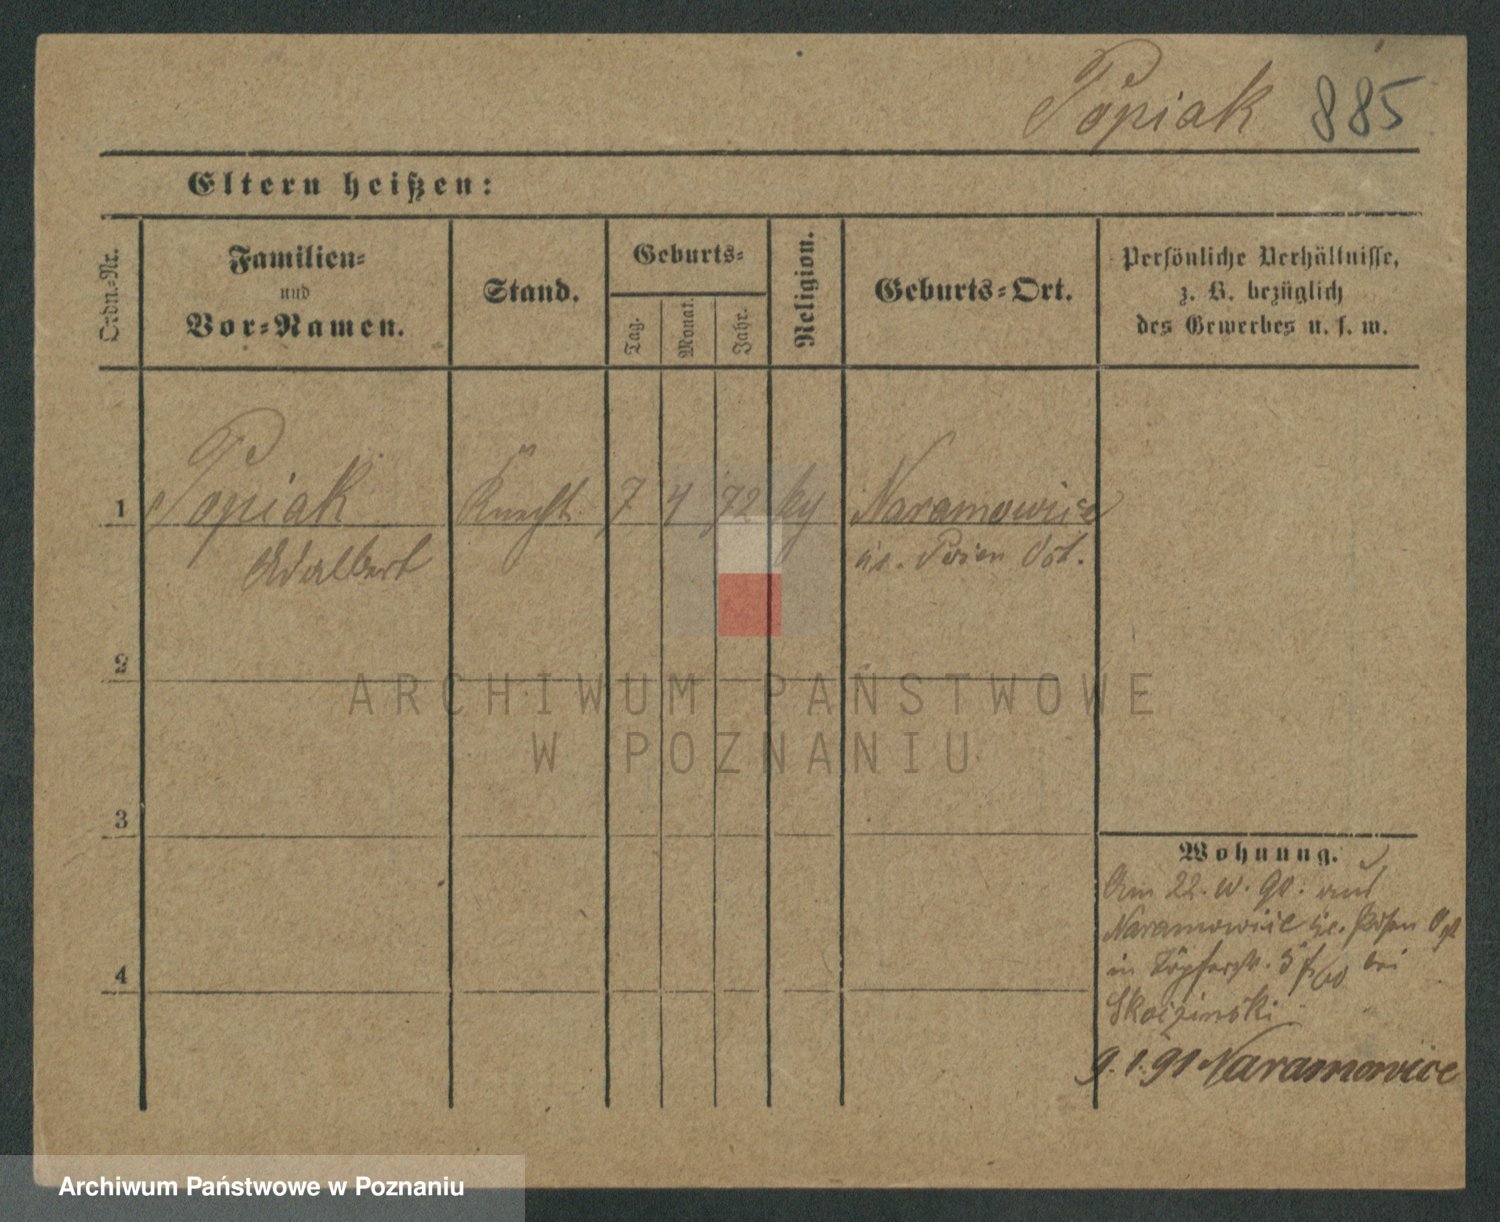 Popiak 885
Eltern heißen:
Ordn.-Nr.
Familien-
und
Vor-Namen.
Stand.
Geburts-
Tag.
Monat.
Jahr.
Religion.
Geburts-Ort.
Persönliche Verhältnisse,
z. B. bezüglich
des Gewerbes u. s. w.
1 Popiak Knecht 7 4 72 Naramowice
Adalbert Kr. Posen Ost.
2
3
4
Wohnung.
Am 22. 90. aus
Naramowice Kr. Posen Ost
in Töpferstr. bei
9.1.91 Naramowice
ARCHIWUM PAŃSTWOWE
W POZNANIU
Archiwum Państwowe w Poznaniu